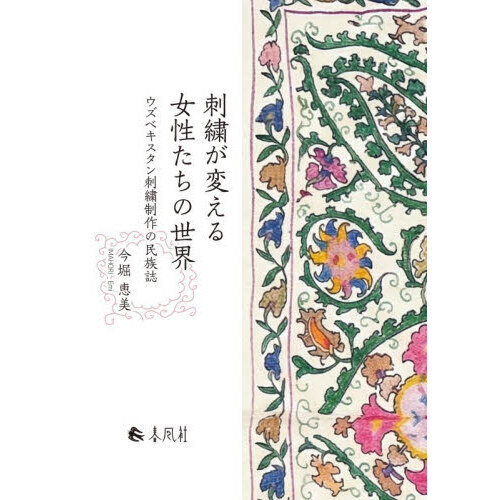 刺繍が変える
女性たちの世界
ウズベキスタン刺繍制作の民族誌
今堀 恵美
IMAHORI・Emi
春風社